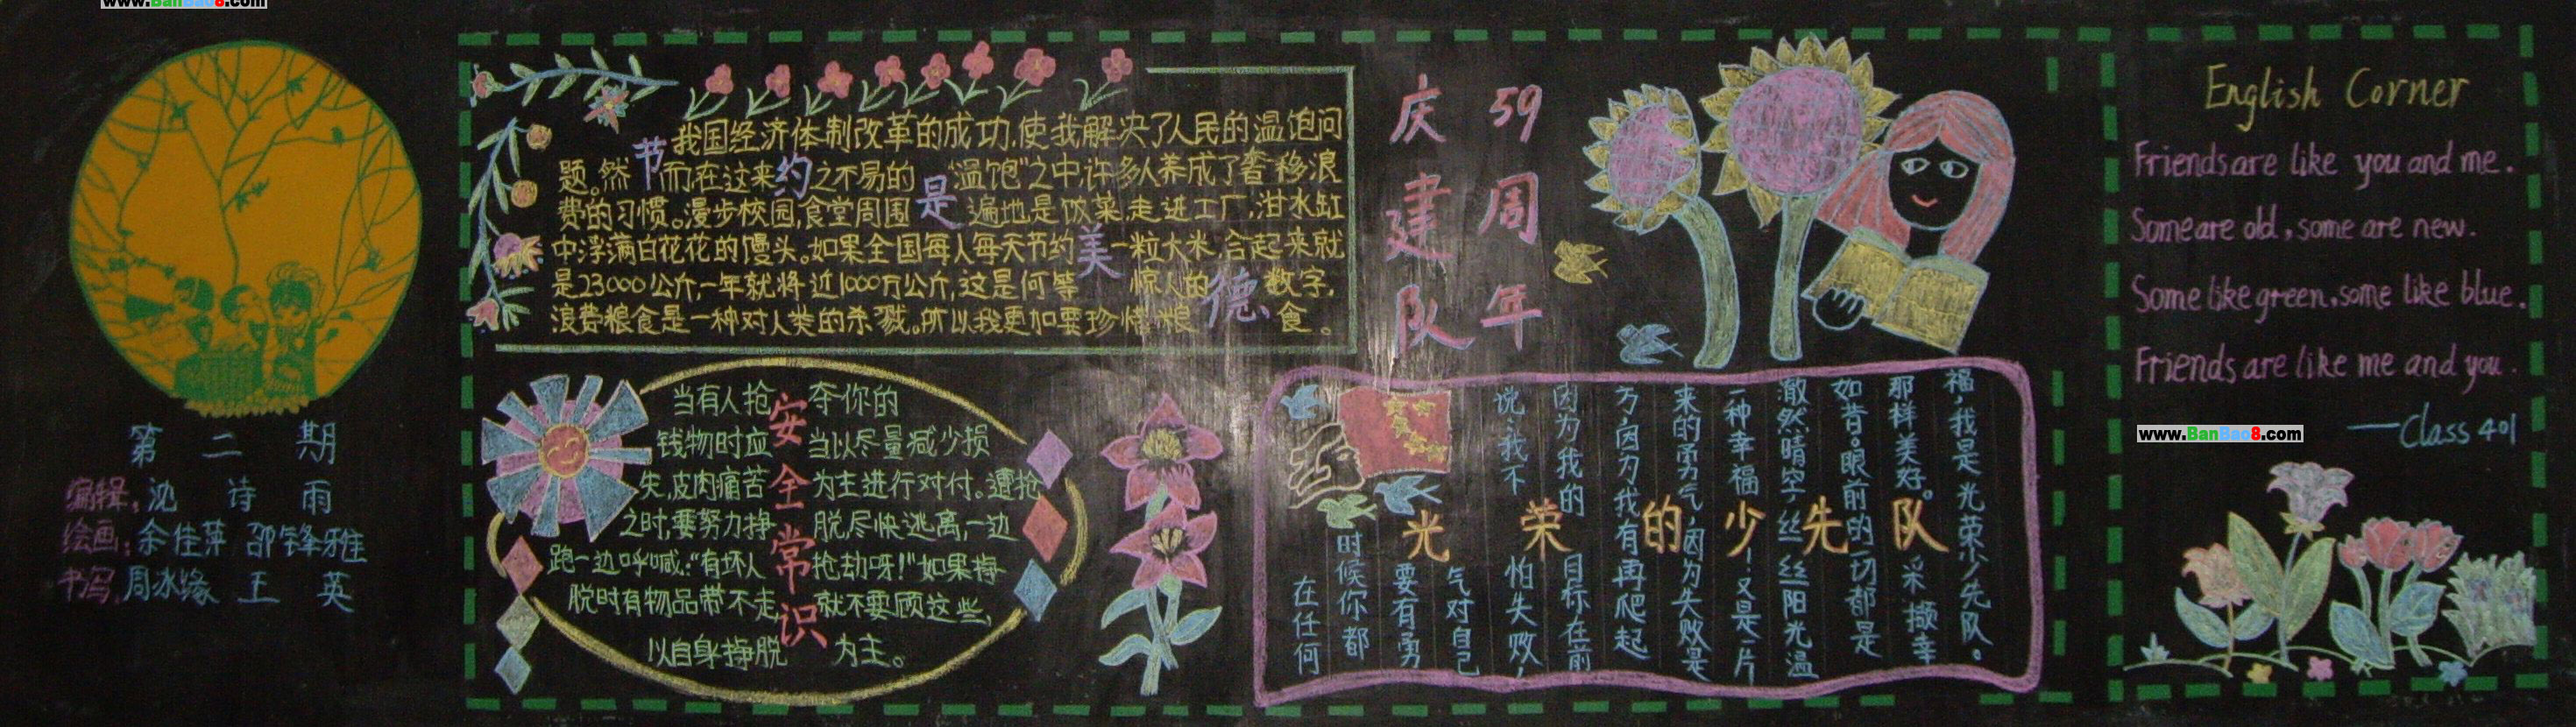 www.BanBao8.com
第二期
编辑:沈诗雨
绘画:余佳萍 邵锋雅
书写:周冰缘 王英
节约是美德
我国经济体制改革的成功,使我解决了人民的温饱问
题。然而,在这来之不易的“温饱”之中,许多人养成了奢移浪
费的习惯。漫步校园,食堂周围遍地是饭菜,走进工厂,泔水缸
中浮满白花花的馒头。如果全国每人每天节约一粒大米,合起来就
是23000公斤,一年就将近1000万公斤,这是何等惊人的数字,
浪费粮食是一种对人类的杀戮。所以我更加要珍惜粮食。
安全常识
当有人抢夺你的
钱物时应当以尽量减少损
失,皮肉痛苦为主进行对付。遭抢
之时,要努力挣脱,尽快逃离,一边
跑一边呼喊:“有坏人抢劫呀!”如果挣
脱时有物品带不走就不要顾这些,
以自身挣脱为主。
庆建队
59周年
光荣的少先队
在任何
时候你都
要有勇
气对自己
说:我不怕失败,
因为我的目标在前
方因为我有再爬起
来的勇气,因为失败是
一种幸福!又是一片
澈然晴空丝丝丝阳光温
如昔。眼前的一切都是
那样美好。采撷幸
福,我是光荣少先队。
English Corner
Friends are like you and me.
Some are old, some are new.
Some like green, some like blue.
Friends are like me and you.
—Class 401
www.BanBao8.com